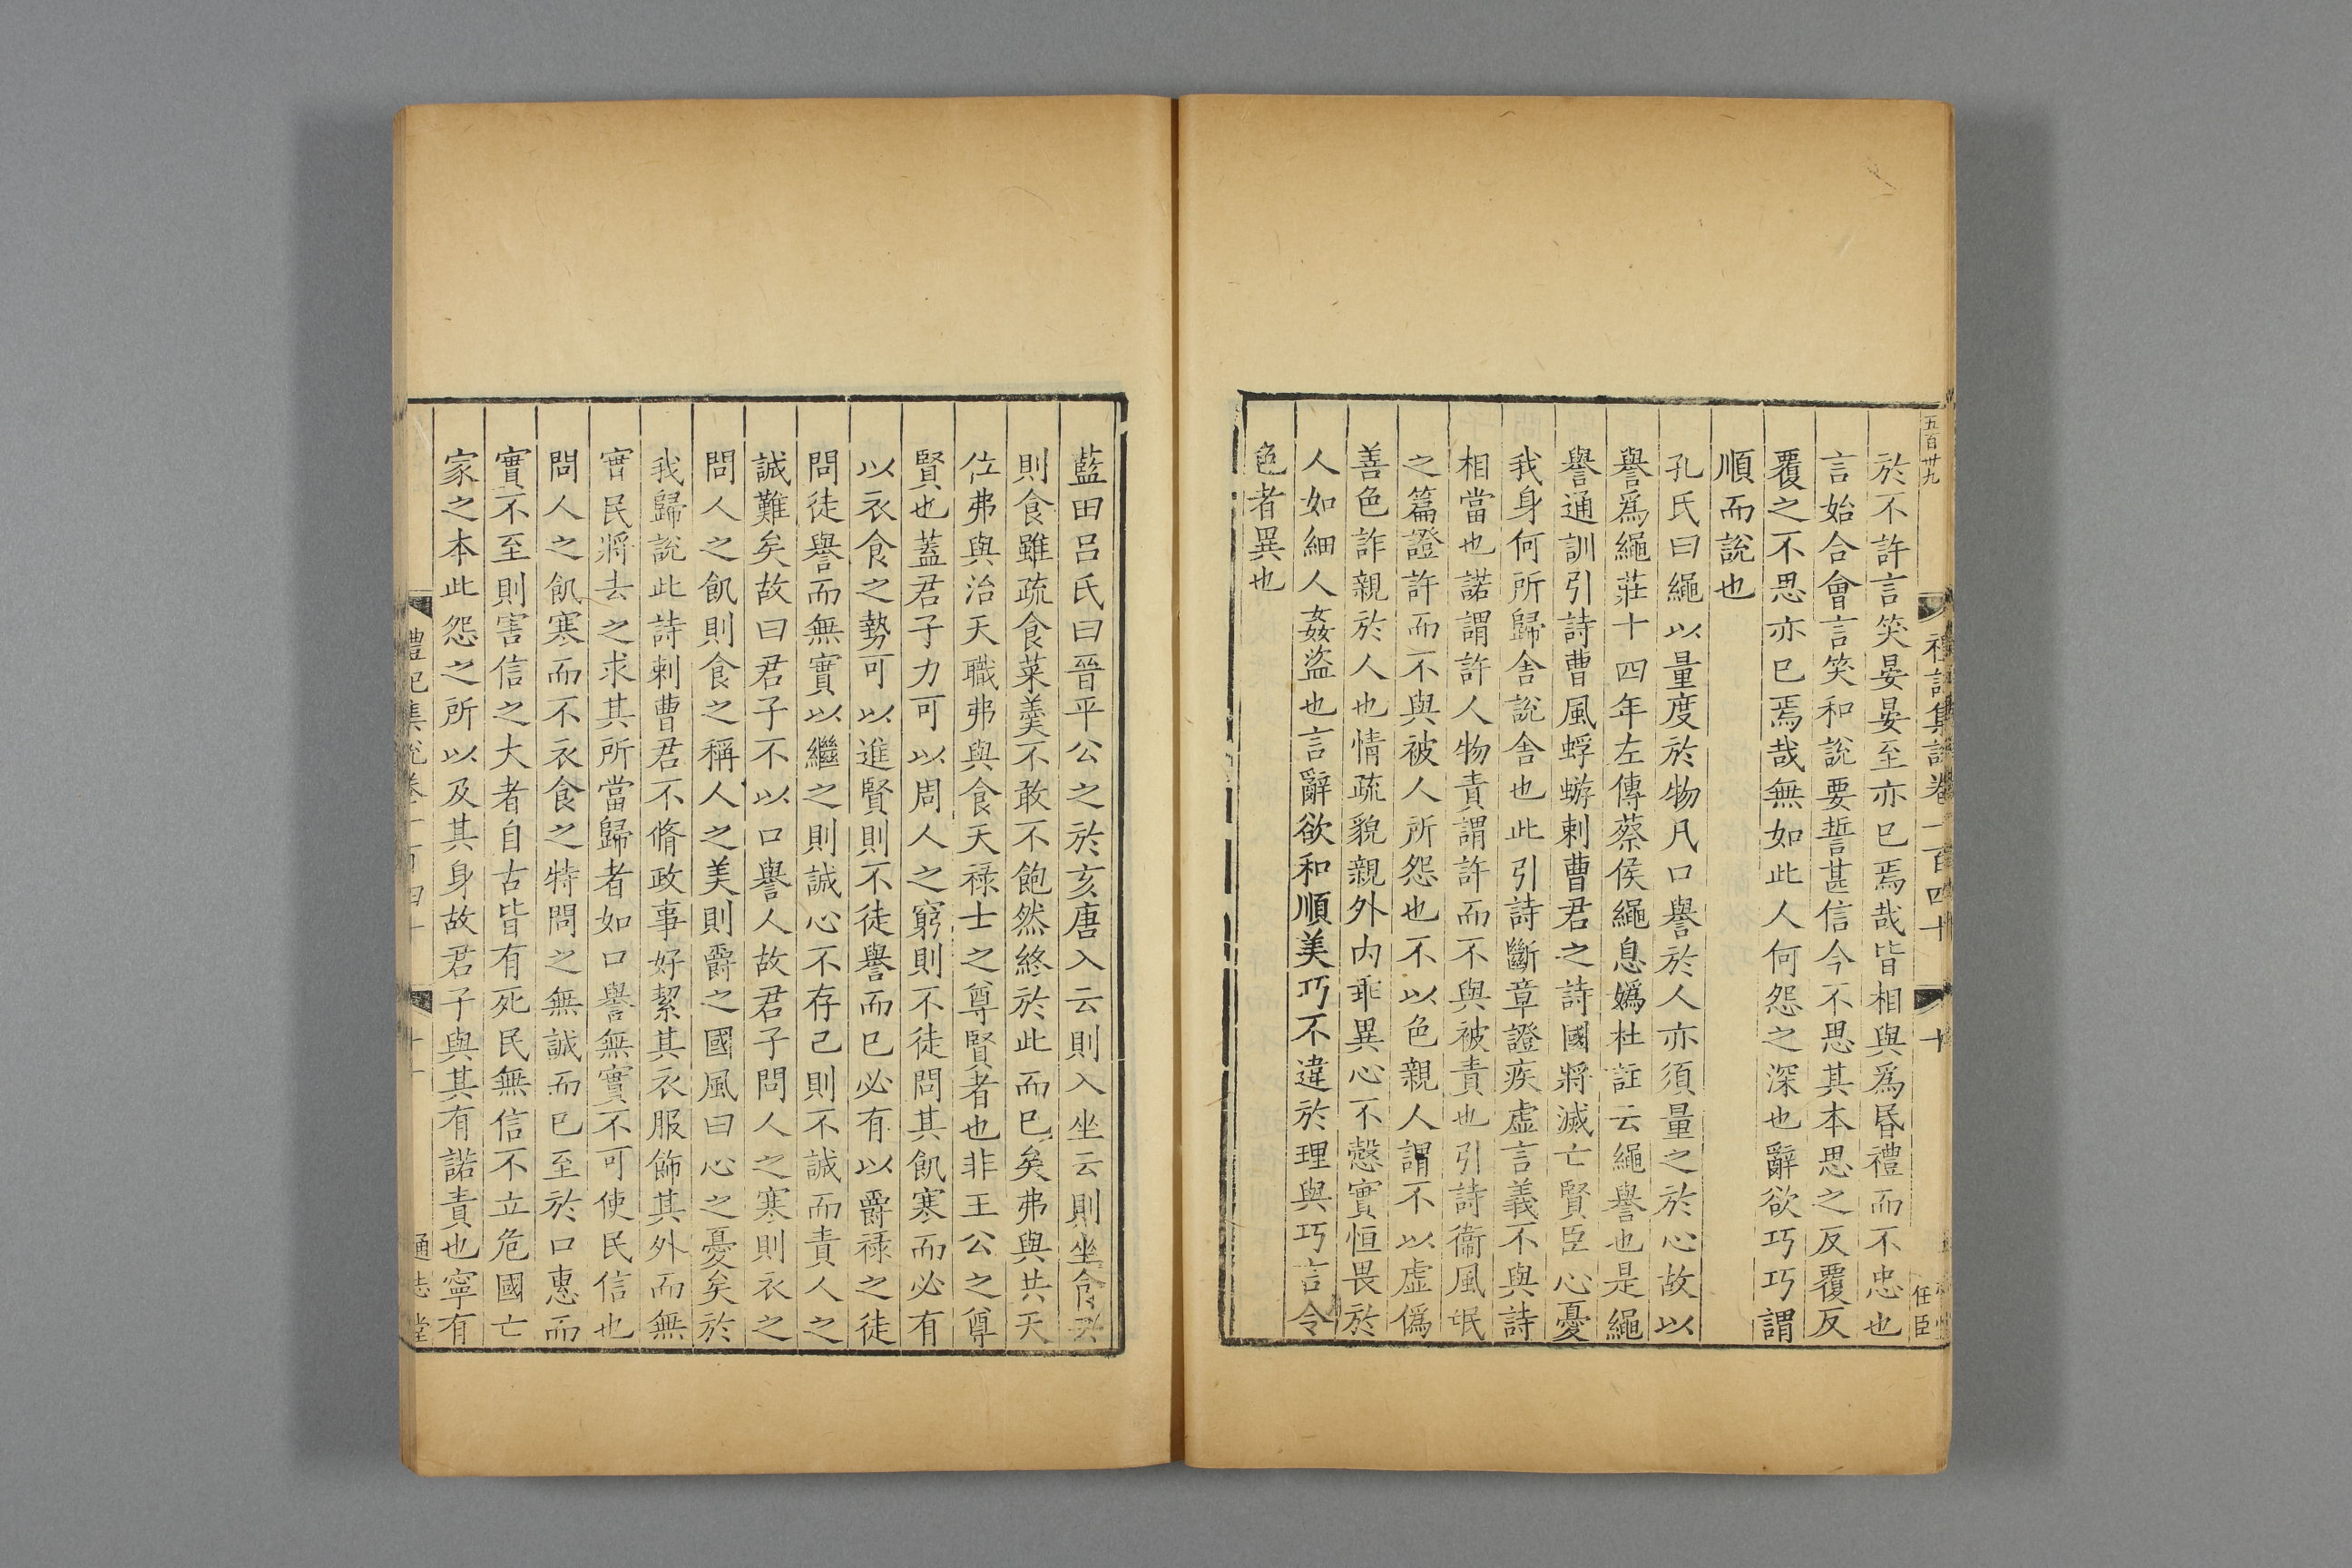 五百卅九
禮記集說卷一百四十
十
任臣
於不許言笑晏晏至亦巳焉哉皆相與爲昏禮而不忠也
言始合會言笑和說要誓甚信今不思其本思之反覆反
覆之不思亦巳焉哉無如此人何怨之深也辭欲巧巧謂
順而說也
孔氏曰繩以量度於物凡口譽於人亦須量之於心故以
譽爲繩莊十四年左傳蔡侯繩息嬀杜註云繩譽也是繩
譽通訓引詩曹風蜉蝣刺曹君之詩國將滅亡賢臣心憂
我身何所歸舍說舍也此引詩斷章證疾虚言義不與詩
相當也諾謂許人物責謂許而不與被責也引詩衞風氓
之篇證許而不與被人所怨也不以色親人謂不以虚僞
善色詐親於人也情疏貌親外内乖異心不慤實恒畏於
人如細人姦盜也言辭欲和順美巧不違於理與巧言令
色者異也
藍田呂氏曰晉平公之於亥唐入云則入坐云則坐食云
則食雖疏食菜羹不敢不飽然終於此而巳矣弗與共天
位弗與治天職弗與食天祿士之尊賢者也非王公之尊
賢也蓋君子力可以周人之窮則不徒問其飢寒而必有
以衣食之勢可以進賢則不徒譽而巳必有以爵祿之徒
問徒譽而無實以繼之則誠心不存己則不誠而責人之
誠難矣故曰君子不以口譽人故君子問人之寒則衣之
問人之飢則食之稱人之美則爵之國風曰心之憂矣於
我歸說此詩刺曹君不脩政事好絜其衣服飾其外而無
實民將去之求其所當歸者如口譽無實不可使民信也
問人之飢寒而不衣食之特問之無誠而巳至於口惠而
實不至則害信之大者自古皆有死民無信不立危國亡
家之本此怨之所以及其身故君子與其有諾責也寧有
禮記集說卷一百四十
十一
通志堂